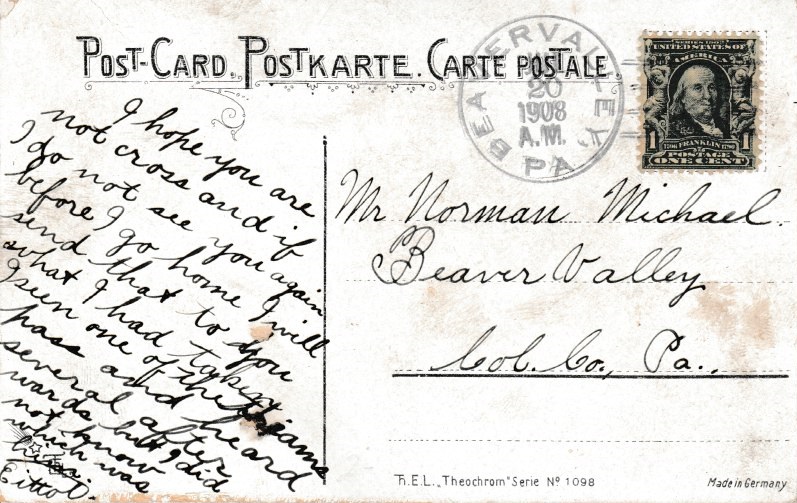 POST-CARD. POSTKARTE. CARTE POSTALE.
BEAVER VALLEY
20
1908
A.M.
PA
SERIES 1902
UNITED STATES OF
AMERICA
1 FRANKLIN 1
POSTAGE
ONE CENT
I hope you are
not cross and if
I do not see you again
before I go home I will
send that to you
what I had taken
I seen one of the teams
pass and heard
several after
wards but I did
not know
which was
Mr. Norman Michael.
Beaver Valley
Col. Co., Pa.,
T.E.L. „Theochrom" Serie Nº 1098
Made in Germany